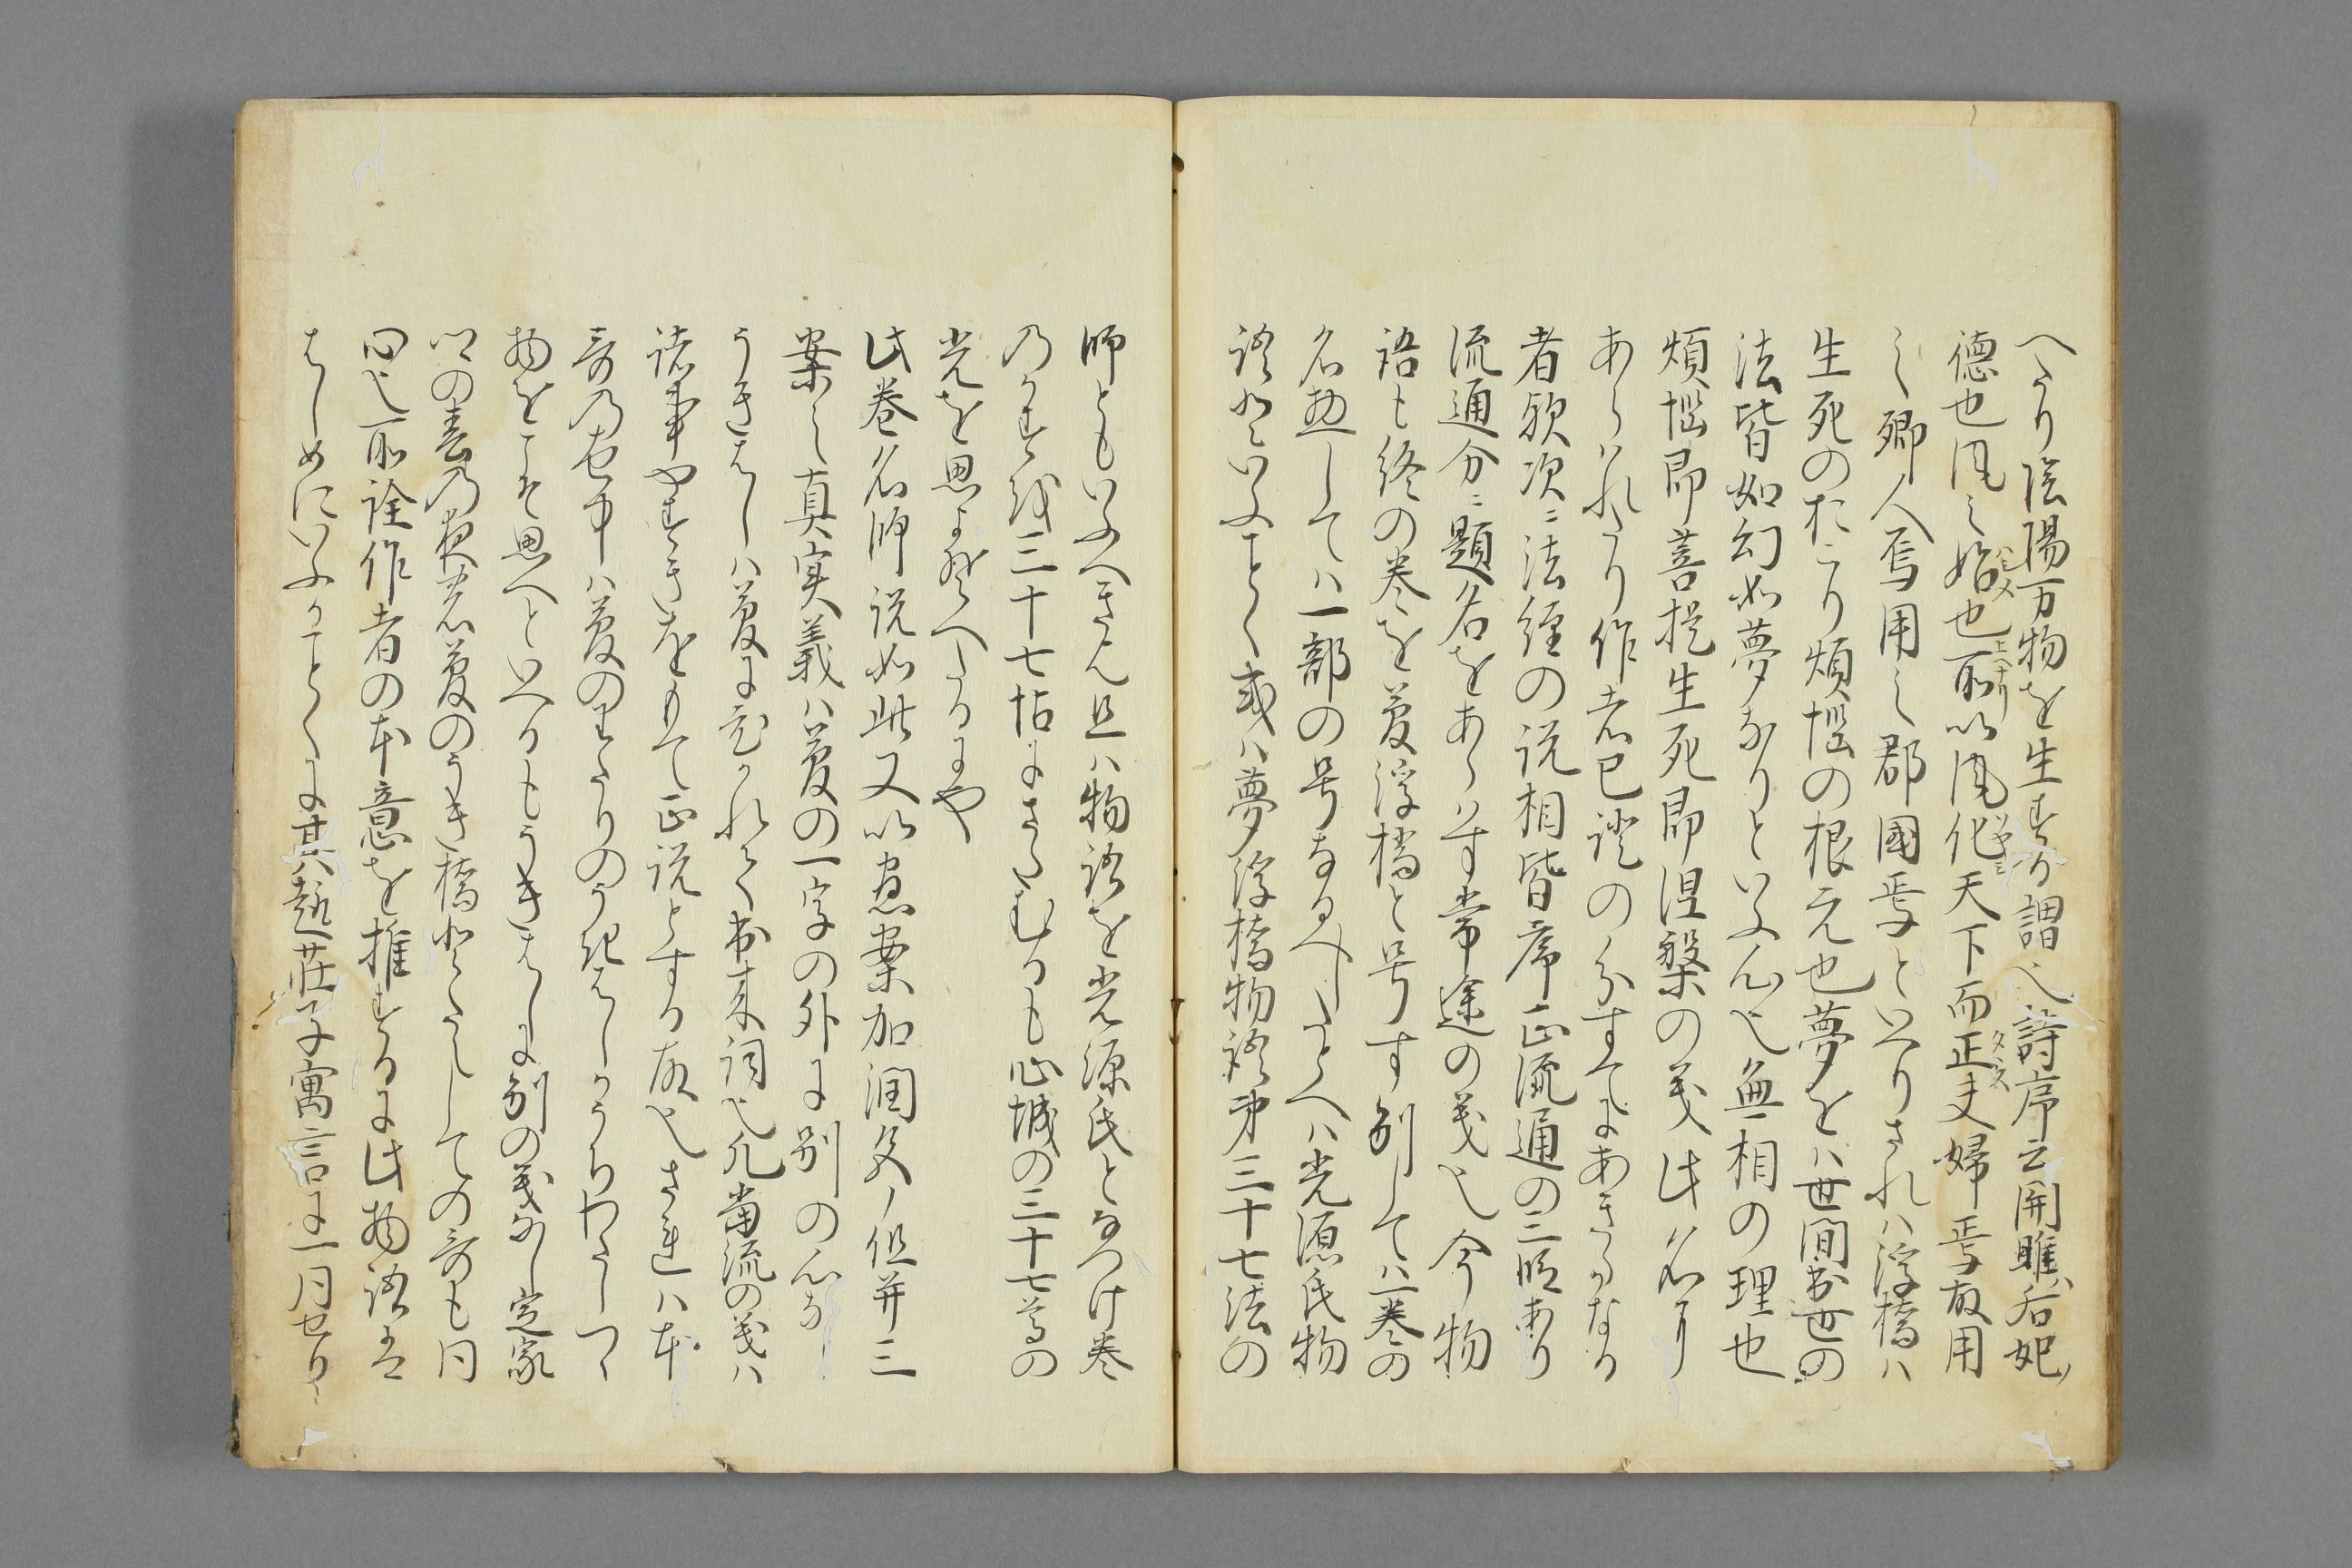 へたり陰陽万物を生する謂也詩序云関雎ハ后妃ノ
徳也風之始也所以風化天下而正夫婦焉故用
之郷人焉用之邦國焉といへりされハ浮橋ハ
生死のおこり煩悩の根元也夢をハ世間出世の
法皆如幻如夢なりといふ心也無相の理也
煩悩即菩提生死即涅槃の義此名ニ
あらハれたり作者已證の分すてにあきらかなる
者歟次ニ法経の説相皆序正流通の三段あり
流通分ニ題名をあらハす常途の義也今物
語も終の巻を夢浮橋と号す別してハ一巻の
名惣してハ一部の号なるへしたとへハ光源氏物
語とといふことく或ハ夢浮橋物語第三十七法の
師ともいふへきにや且ハ物語を光源氏となつけ巻
のかすを三十七帖にさたむるも心城の三十七尊の
光を思よそへたるにや
此巻名師説如此又以愚案加潤色ノ但并三
案之真実義ハ夢の一字の外に別の心なし
うきはしハ夢にひかれて出来詞也凡当流の義ハ
諸事やすきをもて正説とする故也されハ本
哥の世中ハ夢のわたりのうきはしかうちわたしつゝ
物をこそ思へといへるもうきはしに別の義なし定家
卿の春の夜の夢のうき橋とたえしての哥も同
心也所詮作者の本意を推するに此物語は
はしめにいふかことくに其趣荘子寓言に一同せり